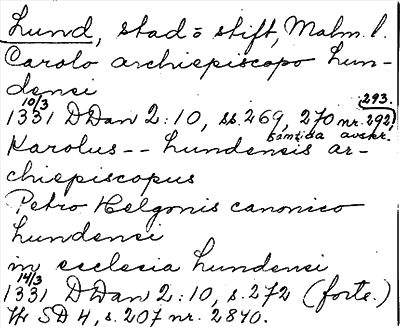 Lund, stad o stift, Malm. l.
Carolo archiepiscopo Lun-
densi
10/3 293.
1331 DDan 2:10, ss. 269, 270 nr. 292,
samtida avskr.
Karolus -- Lundensis ar-
chiepiscopus
Petro Helgonis canonico
Lundensi
in ecclesia Lundensi
14/3
1331 DDan 2:10, s. 272 (forts.)
SD 4, s. 207 nr. 2840.